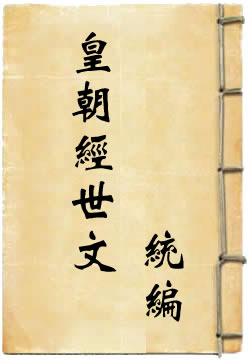 皇朝經世文
統編